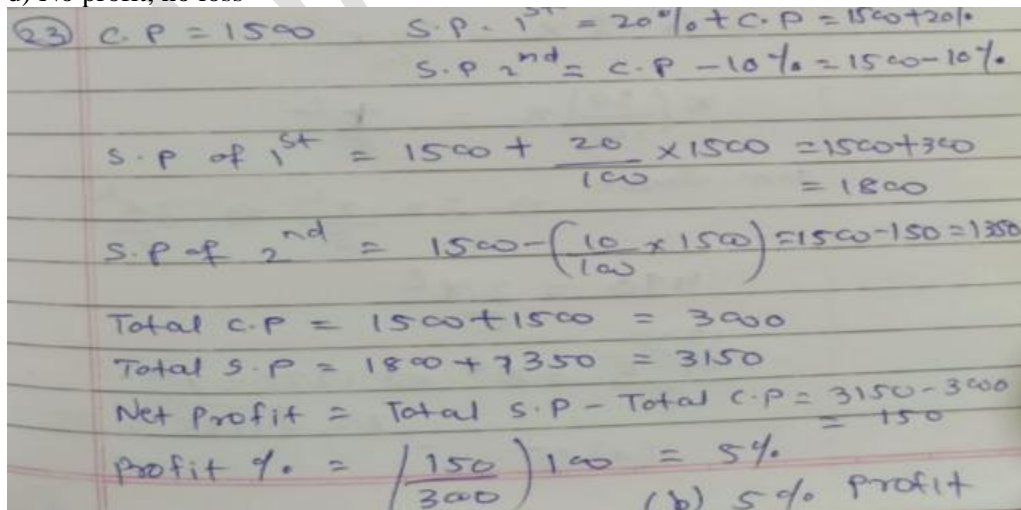 d) No profit, no loss
(23) C.P = 1500 S.P. 1st = 20% + C.P = 1500+20%
S.P 2nd = C.P - 10% = 1500-10%
S.P of 1st = 1500 + 20/100 × 1500 = 1500+300
= 1800
S.P of 2nd = 1500 - (10/100 × 1500) = 1500-150 = 1350
Total C.P = 1500+1500 = 3000
Total S.P = 1800 + 1350 = 3150
Net Profit = Total S.P - Total C.P = 3150-3000
= 150
Profit % = (150/3000) 100 = 5%
(b) 5% profit